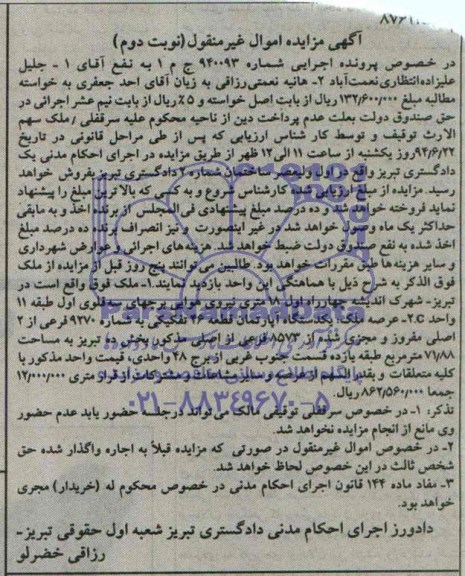 ۸۷۶۱
آگهی مزایده اموال غیرمنقول (نوبت دوم)
در خصوص پرونده اجرایی شماره ۹۴۰۰۹۳ ج م ۱ به نفع آقای ۱ - جلیل
علیزاده انتظاری نعمت آباد ۲- هانیه نعمتی رزاقی به زیان آقای احد جعفری به خواسته
مطالبه مبلغ ۱۳۲/۶۰۰/۰۰۰ ریال از بابت اصل خواسته و ۵٪ ریال از بابت نیم عشر اجرائی در
حق صندوق دولت بعلت عدم پرداخت دین از ناحیه محکوم علیه سرقفلی / ملک سهم
الارث توقیف و توسط کار شناس ارزیابی که پس از طی مراحل قانونی در تاریخ
۹۴/۶/۲۲ روز یکشنبه از ساعت ۱۱ الی ۱۲ ظهر از طریق مزایده در اجرای احکام مدنی یک
دادگستری تبریز واقع در اول ولیعصر ساختمان شماره ۲ دادگستری تبریز بفروش خواهد
رسید. مزایده از مبلغ ارزیابی شده کارشناس شروع و به کسی که بالاترین مبلغ را پیشنهاد
نماید فروخته خواهد شد و ده درصد مبلغ پیشنهادی فی المجلس از برنده اخذ و به مابقی
حداکثر یک ماه وصول خواهد شد در غیر اینصورت و نیز انصراف برنده ده درصد مبلغ
اخذ شده به نفع صندوق دولت ضبط خواهد شد. هزینه های اجرائی و عوارض شهرداری
و سایر هزینه ها طبق مقررات خواهد بود. طالبین می توانند پنج روز قبل از مزایده از ملک
فوق الذکر به شرح ذیل با هماهنگی این واحد بازدید نمایند. ۱- ملک فوق واقع است در
تبریز- شهرک اندیشه چهارراه اول ۱۸ متری نیروی هوایی برجهای سه قلوی اول طبقه ۱۱
واحد C.۲- عرصه ملک: یکدستگاه آپارتمان قطعه ۴۷ تفکیکی به شماره ۹۲۷۰ فرعی از ۲
اصلی مفروز و مجزی شده از ۸۵۷۳ فرعی از اصلی مذکور بخش ده تبریز به مساحت
۷۱/۸۸ مترمربع طبقه یازده قسمت جنوب غربی از برج ۴۸ واحدی، قیمت واحد مذکور با
کلیه متعلقات و بقدرالسهم از عرصه و سایر مشاعات و مشترکات از قرار متری ۱۲/۰۰۰/۰۰۰
جمعا ۸۶۲/۵۶۰/۰۰۰ ریال.
تذکر: ۱- در خصوص سرقفلی توقیفی مالک می تواند درجلسه حضور یابد عدم حضور
وی مانع از انجام مزایده نخواهد شد.
۲- در خصوص اموال غیرمنقول در صورتی که مزایده قبلاً به اجاره واگذار شده حق
شخص ثالث در این خصوص لحاظ خواهد شد.
۳- مفاد ماده ۱۴۴ قانون اجرای احکام مدنی در خصوص محکوم له (خریدار) مجری
خواهد بود.
دادورز اجرای احکام مدنی دادگستری تبریز شعبه اول حقوقی تبریز-
رزاقی خضرلو
ParsNamadData
۰۲۱-۸۸۳۴۹۶۷۰-۵